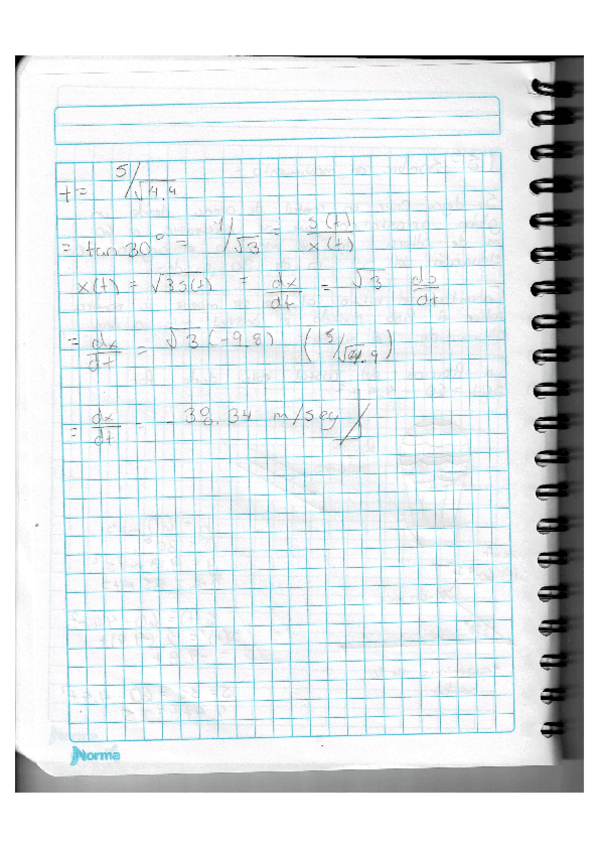 t = 5/√4.9
= tan 30° = 1/√3 = s(t)/x(t)
x(t) = √3 s(t) = dx/dt = √3 ds/dt
= dx/dt = √3 (-9.8) (5/√4.9)
= dx/dt - 38.34 m/seg
Norma